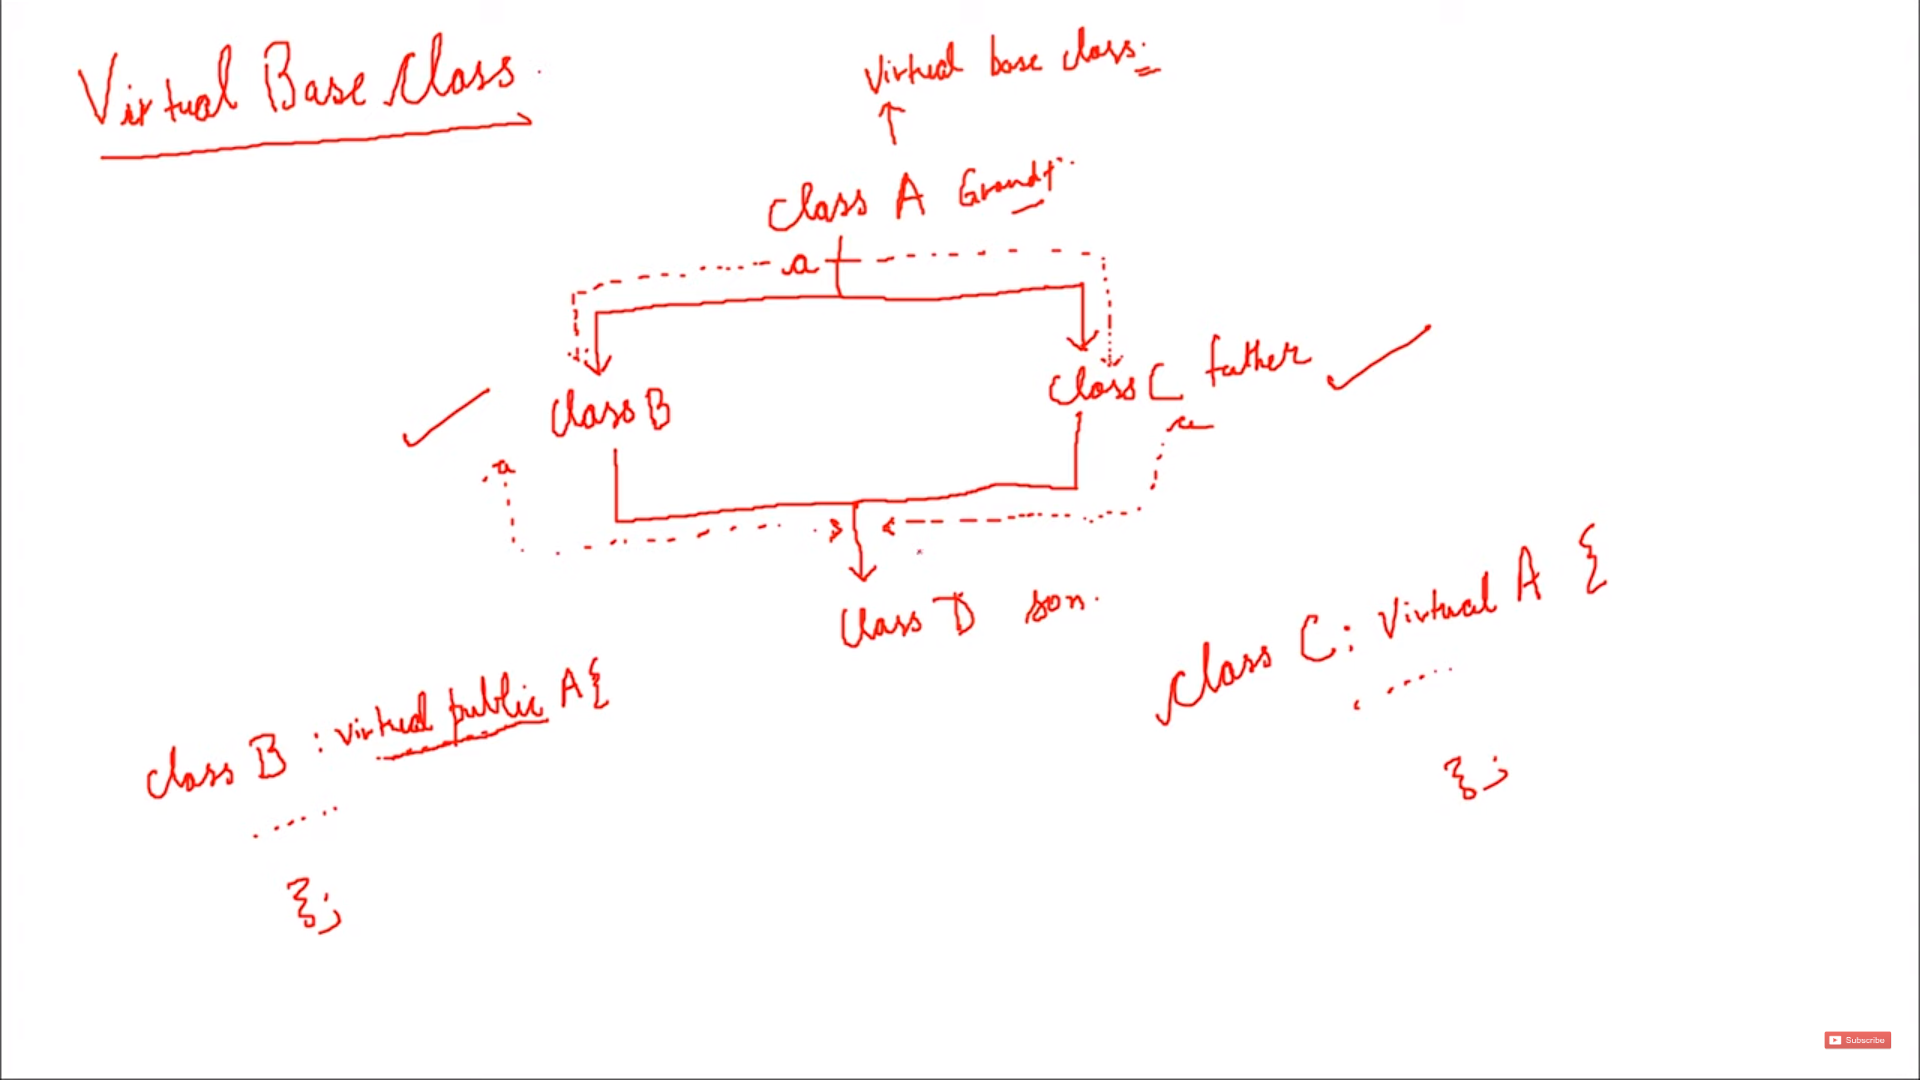 Virtual Base Class.
Virtual base class.
Class A
a
Class B
Class C father
a
Class D son.
Class C : Virtual A {
.....
};
class B : virtual public A{
.....
};
Subscribe